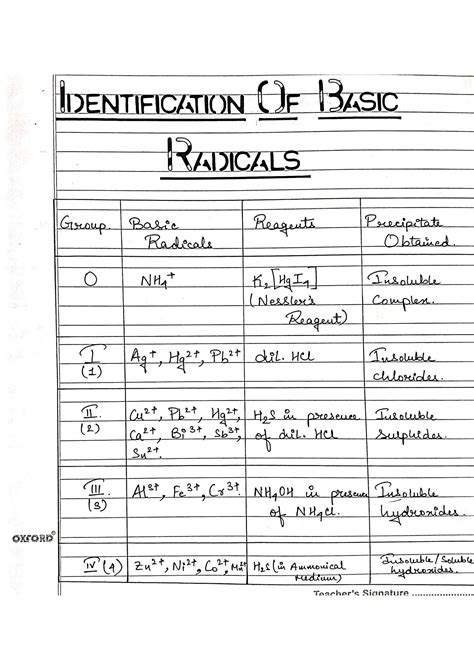 IDENTIFICATION OF BASIC
RADICALS
Group. Basic Radicals Reagents Precipitate Obtained.
O NH4+ K2[HgI4] (Nessler's Reagent) Insoluble Complex.
I (1) Ag+, Hg2+, Pb2+ dil. HCl Insoluble chlorides.
II (2) Cu2+, Pb2+, Hg2+, Ca2+, Bi3+, Sb3+, Sn2+. H2S in presence of dil. HCl Insoluble Sulphides.
III (3) Al3+, Fe3+, Cr3+. NH4OH in presence of NH4Cl. Insoluble hydroxides.
OXFORD
IV (4) Zn2+, Ni2+, Co2+, Mn2+ H2S (in Ammonical Medium) Insoluble/Soluble hydroxides.
Teacher's Signature